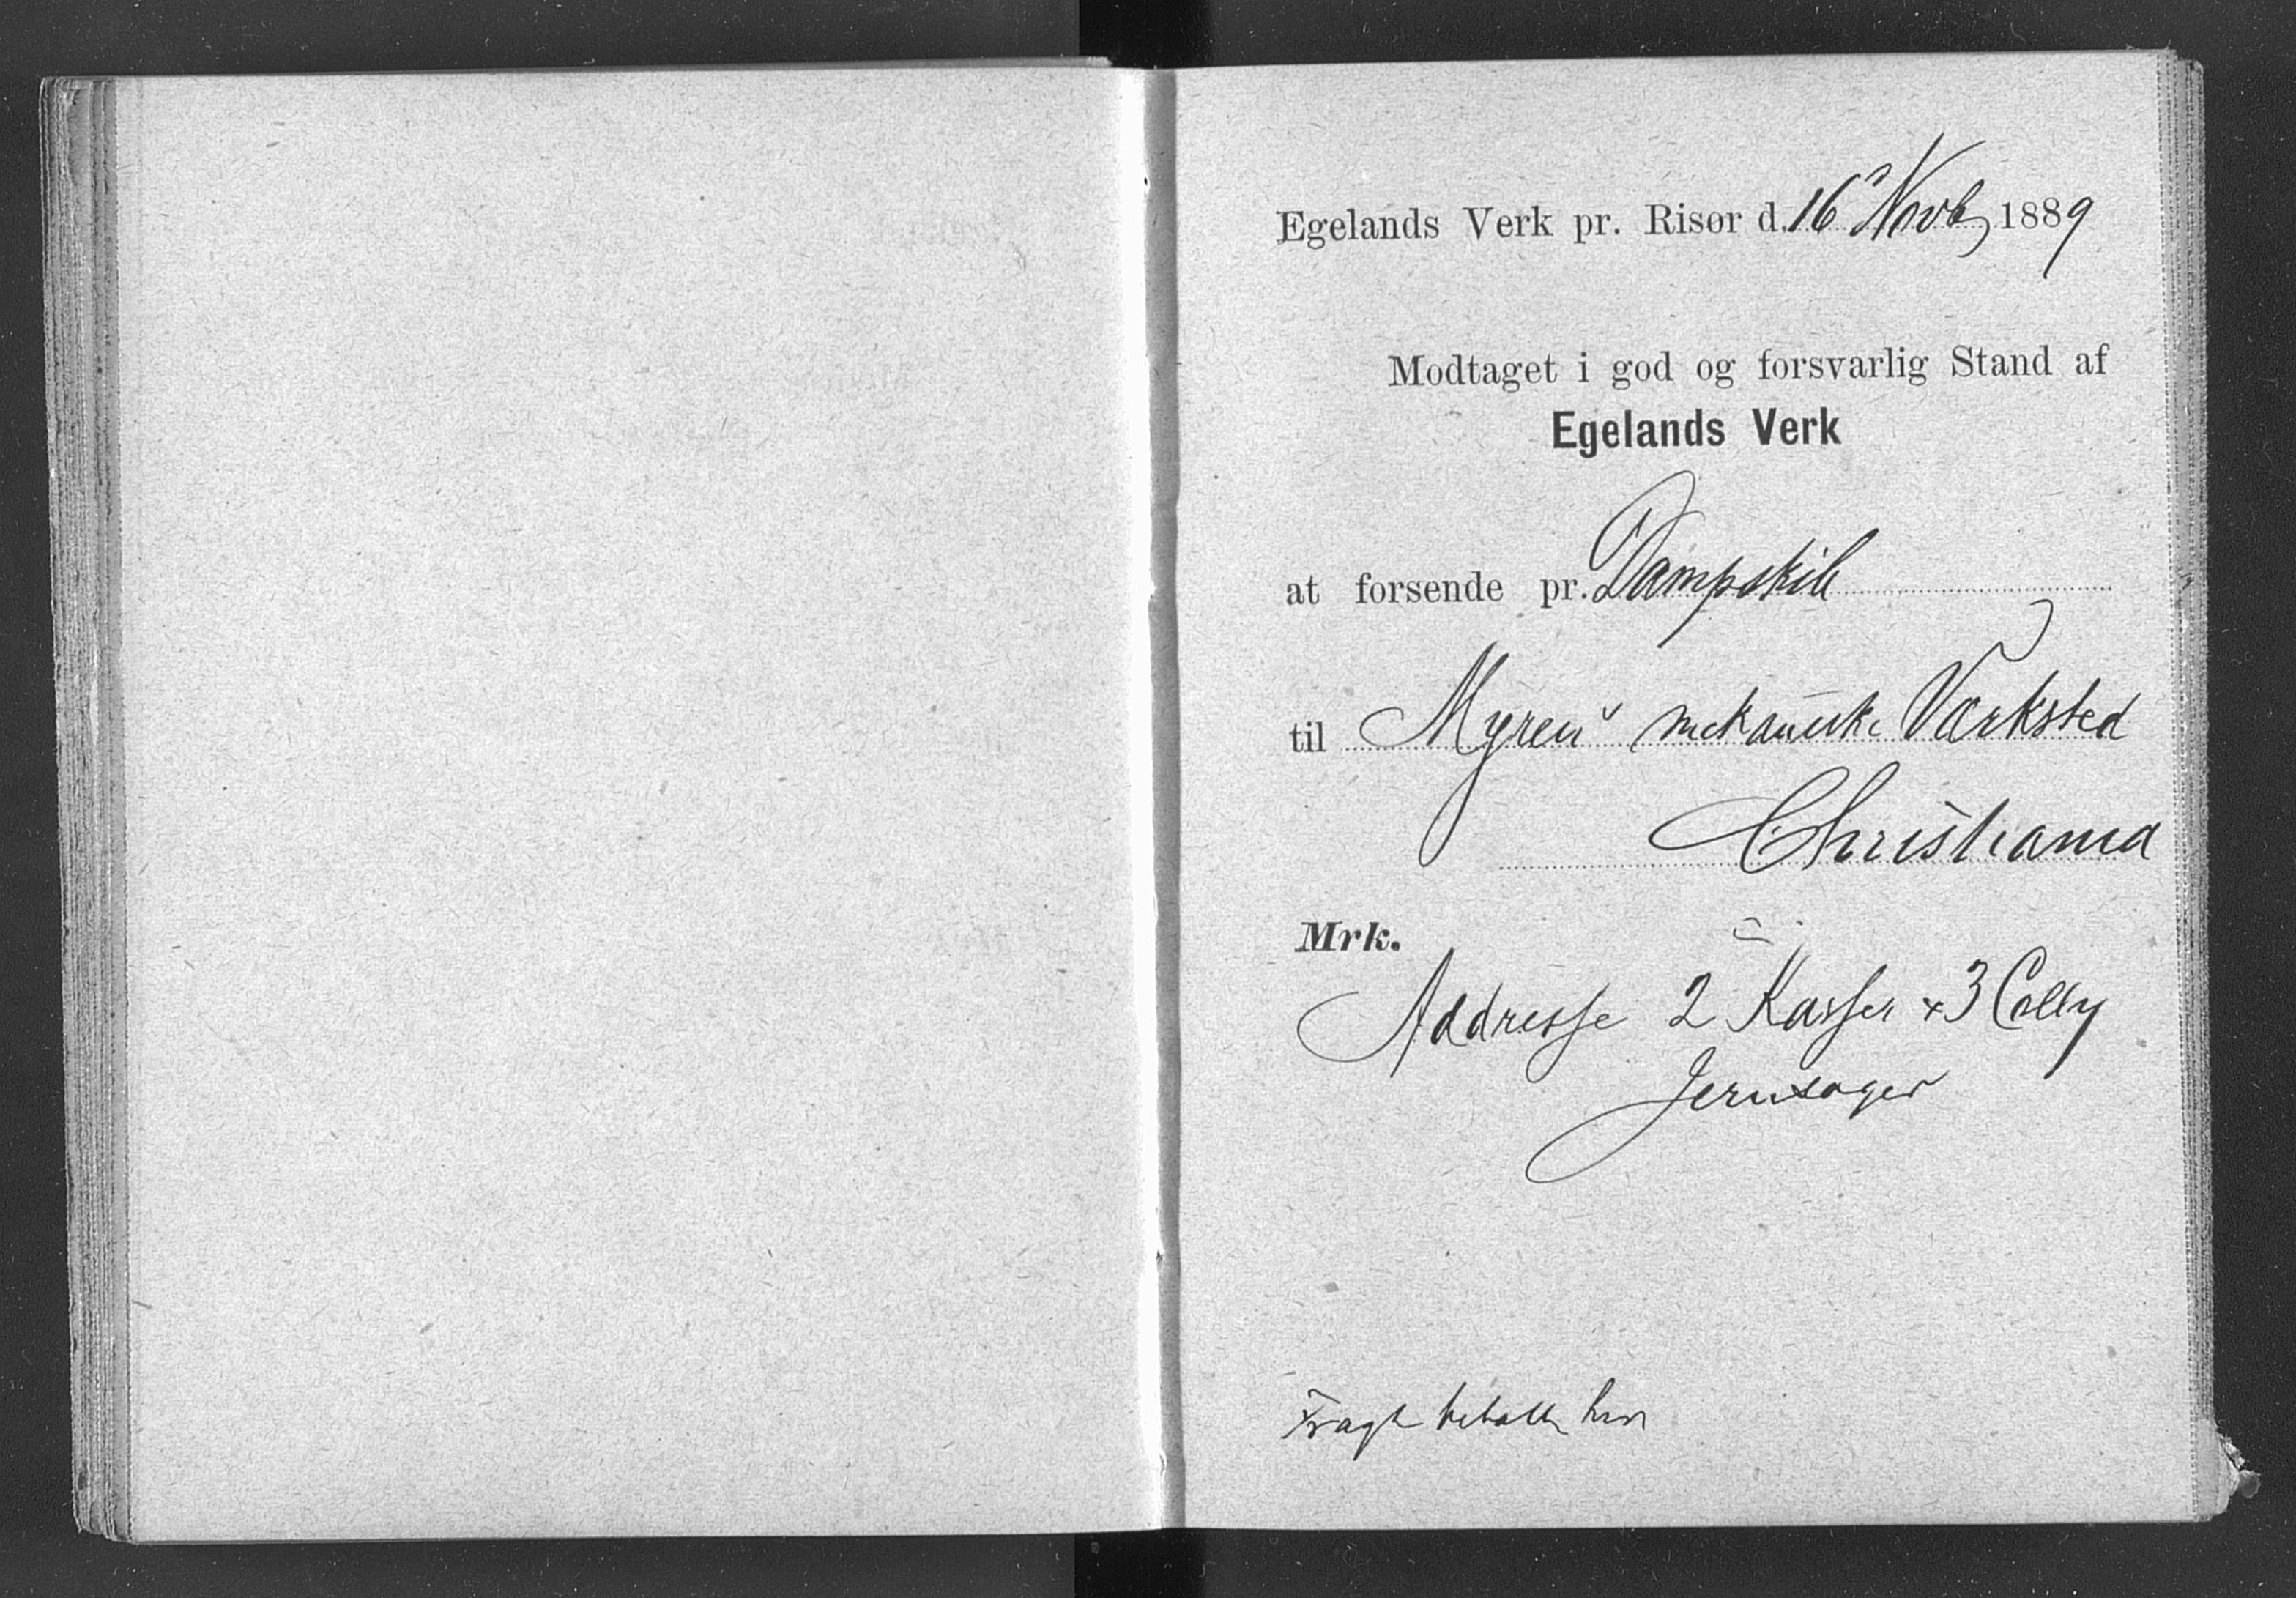 Egelands Verk pr. Risør d. 16 Novb 1889
Modtaget i god og forsvarlig Stand af
Egelands Verk
at forsende pr. Dampskib
til Myrens mekaniske Værksted
Christiania
Mrk.
Addresse 2 Kasser + 3 Colly
Jernsager
Fragt betalt her